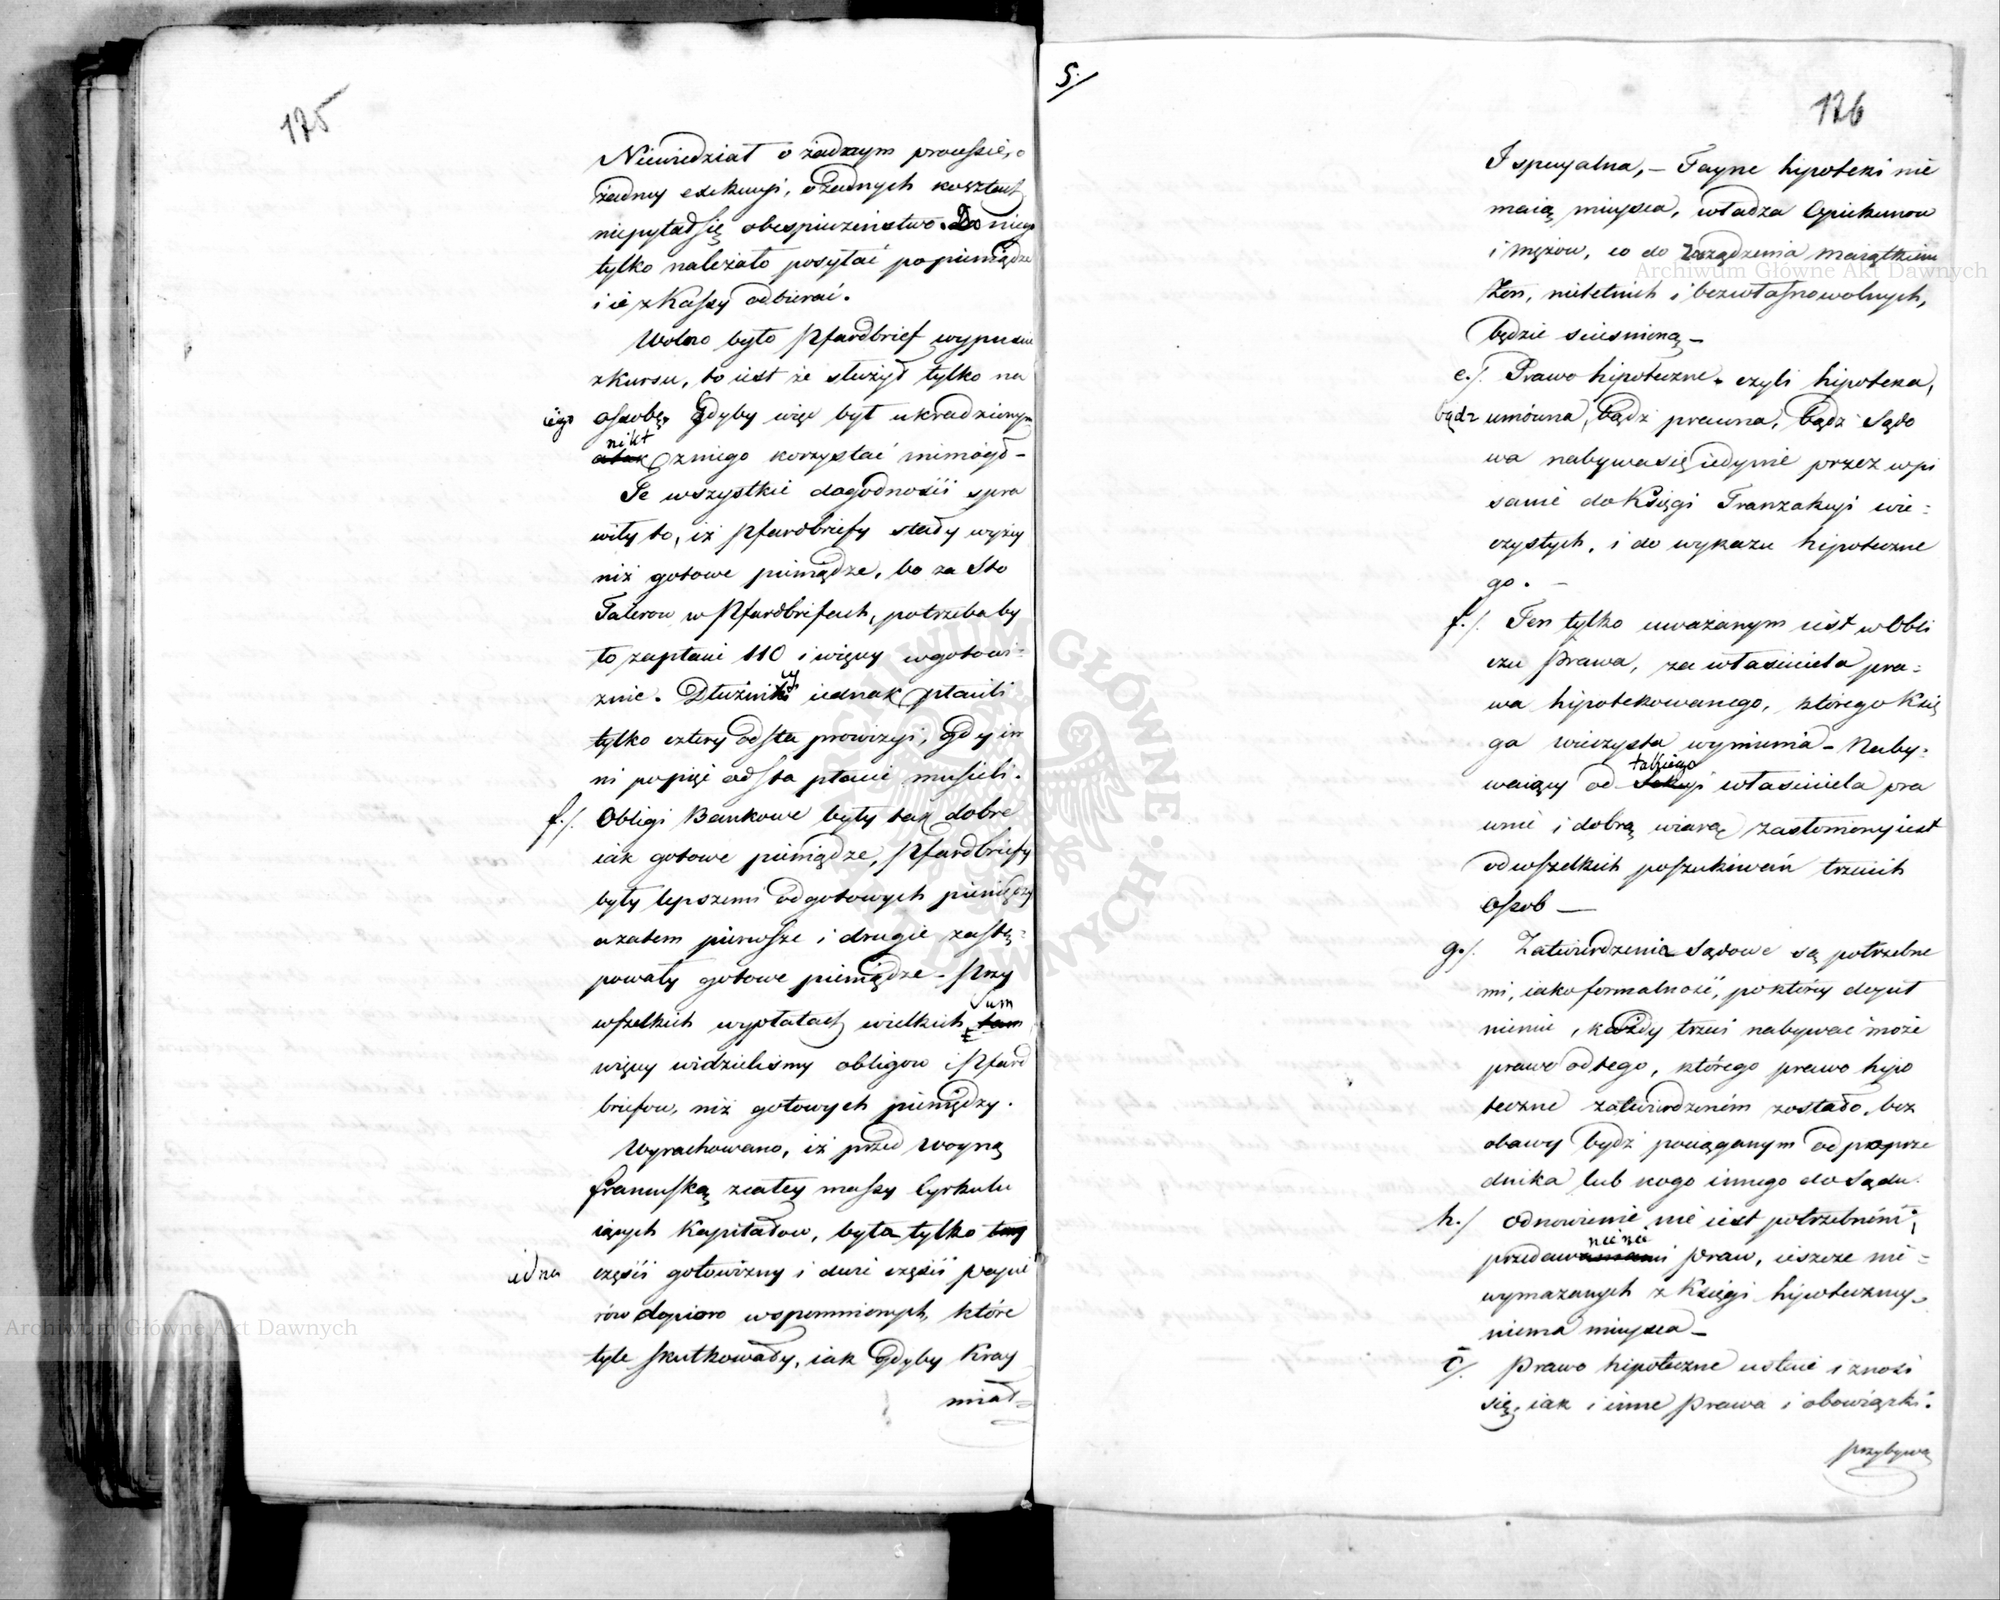 175
Niewiedział o żadnym processie, o
żadney exekucyi, o żadnych kosztach
niepytał się obespieczeństwo. Do niego
tylko należało posyłać po pieniądze
i ie z Kassy odbierać.
Wolno było Pfandbrief wypuścić
z kursu, to iest że służył tylko na
iego osobę. Gdyby więc był ukradzionym
nikt
z niego korzystać niemógł –
Te wszystkie dogodności spra
wiły to, iż Pfandbriefy stały wyżey
niż gotowe pieniądze, bo za Sto
Talerow w Pfandbriefach, potrzeba by
to zapłacić 110 i więcey w gotowi=
znie. Dłużnicy iednak płacili
tylko cztery od sta prowizyi, gdy in
ni po pięć od sta płacić musieli.
f./. Obligi Bankowe były tak dobre
iak gotowe pieniądze, Pfandbriefy
były lepszemi od gotowych pieniędzy
a zatem pierwsze i drugie zastę=
powały gotowe pieniądze – Przy
Sum
wszelkich wypłatach wielkich
więcey widzieliśmy obligow i Pfand
briefow, niż gotowych pieniędzy.
Wyrachowano, iż przed Woyną
francuską z całey massy Cyrkulu
iących Kapitałow, była tylko
iedna części gotowizny i dwie części papie
rów dopiero wspomnionych, które
tyle skutkowały, iak gdyby Kray
miał
5./
176
I specyalna, – Tayne hipoteki nie
maią mieysca, władza Opiekunow
i mężow, co do zarządzenia maiątkiem
Żon, nieletnich i bezwłasnowolnych,
będzie scieśnioną –
e./. Prawo hipoteczne czyli hipoteka,
bądz umówna, bądź prawna, bądź Sądo
wa nabywa się iedynie przez wpi
sanie do Księgi Tranzakcyi wie=
czystych, i do wykazu hipoteczne
go. –
f./. Ten tylko uważanym iest w Obli
czu Prawa, za właściciela pra=
wa hipotekowanego, którego Księ
ga wieczysta wymienia – Naby=
takiego
waiący od właściciela pra
wnie i dobrą wiarą zasłoniony iest
od wszelkich poszukiwań trzecich
Osob —
g./. Zatwierdzenia Sądowe są potrzebne
mi, iako formalność, po którey dopeł
nieniu, każdy trzeci nabywać może
prawo od tego, którego prawo hipo
teczne zatwierdzoném zostało, bez
obawy bydź pociąganym od poprze
dnika lub kogo innego do Sądu.
h./. Odnowienie nie iest potrzebném;
przedawnienie praw, ieszcze nie=
wymazanych z Księgi hipoteczney
niema mieysca –
i/. Prawo hipoteczne ustaie i znosi
się, iak i inne Prawa i obowiązki.
przybywa
Archiwum Główne Akt Dawnych
Archiwum Główne Akt Dawnych
ARCHIWUM GŁÓWNE AKT DAWNYCH